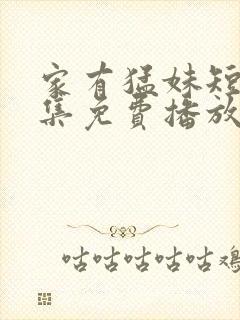 家有猛妹短
集免費播放
咕咕咕咕咕鸡